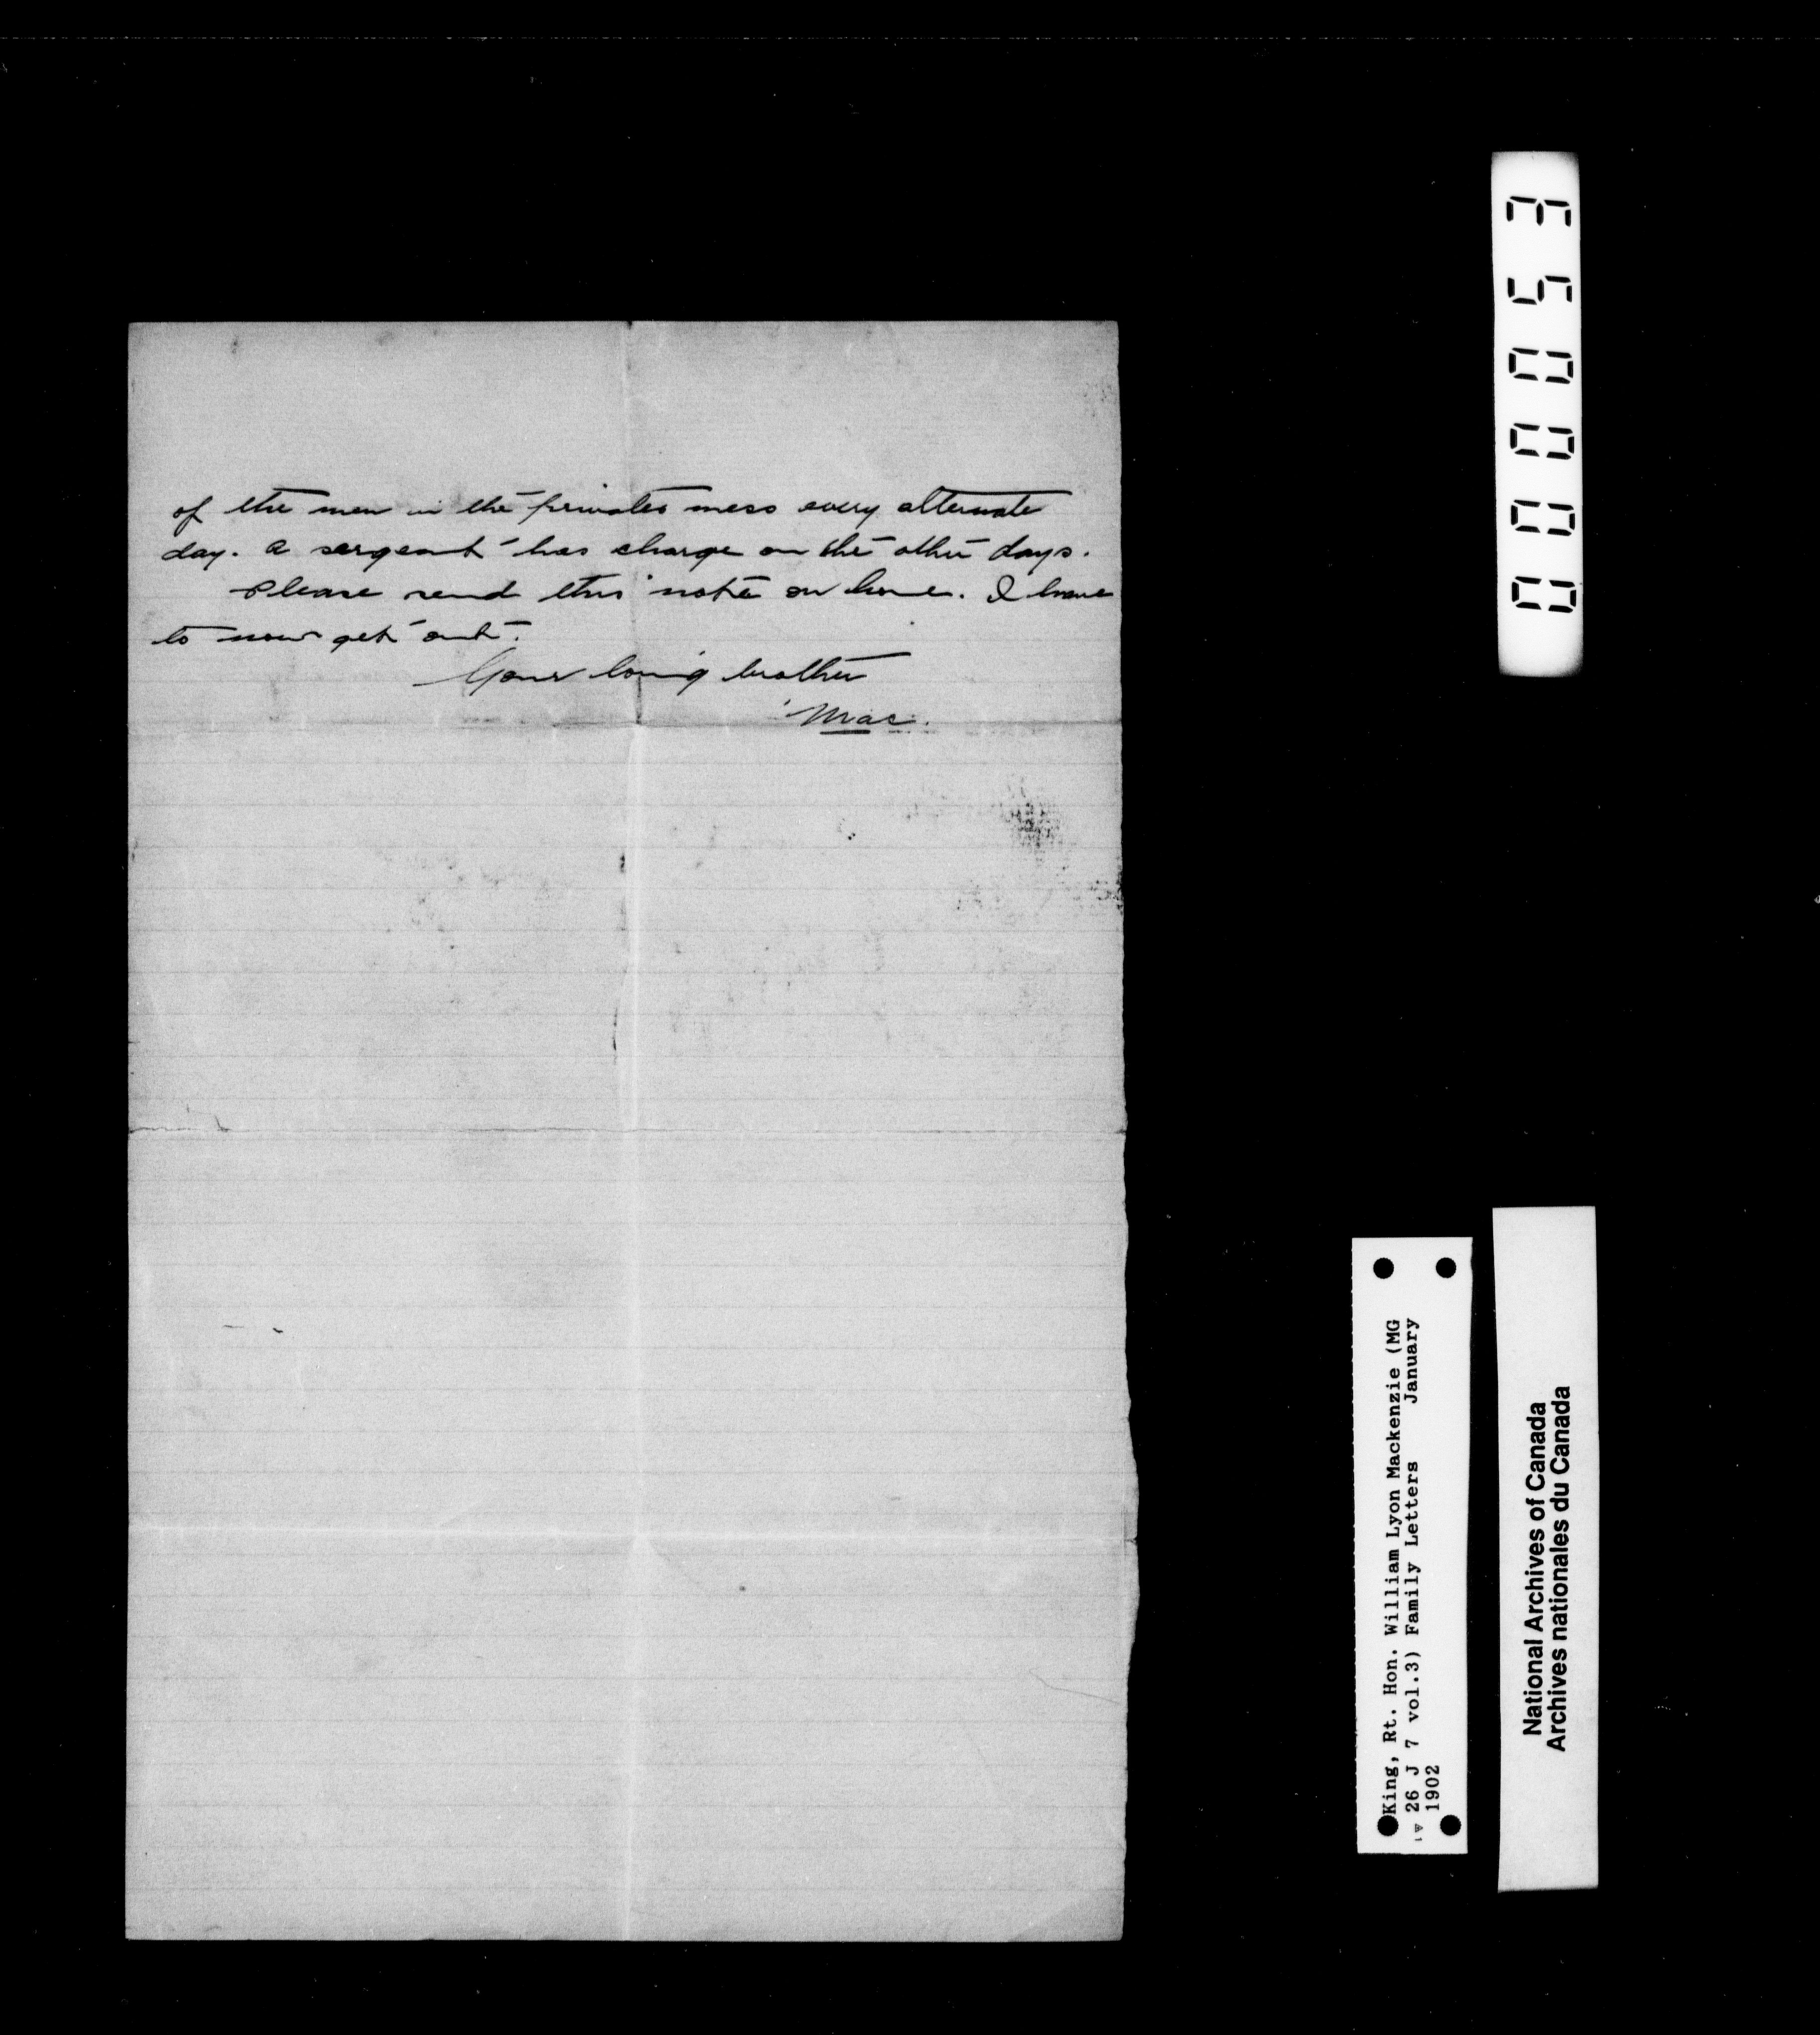 of the men in the privates mess every alternate
day. A sergeant has charge on the other days.
Please send this note on home. I have
to now get out.
Your loving brother
Mac.
000053
King, Rt. Hon. William Lyon Mackenzie (MG
26 J 7 vol.3) Family Letters January
1902
National Archives of Canada
Archives nationales du Canada